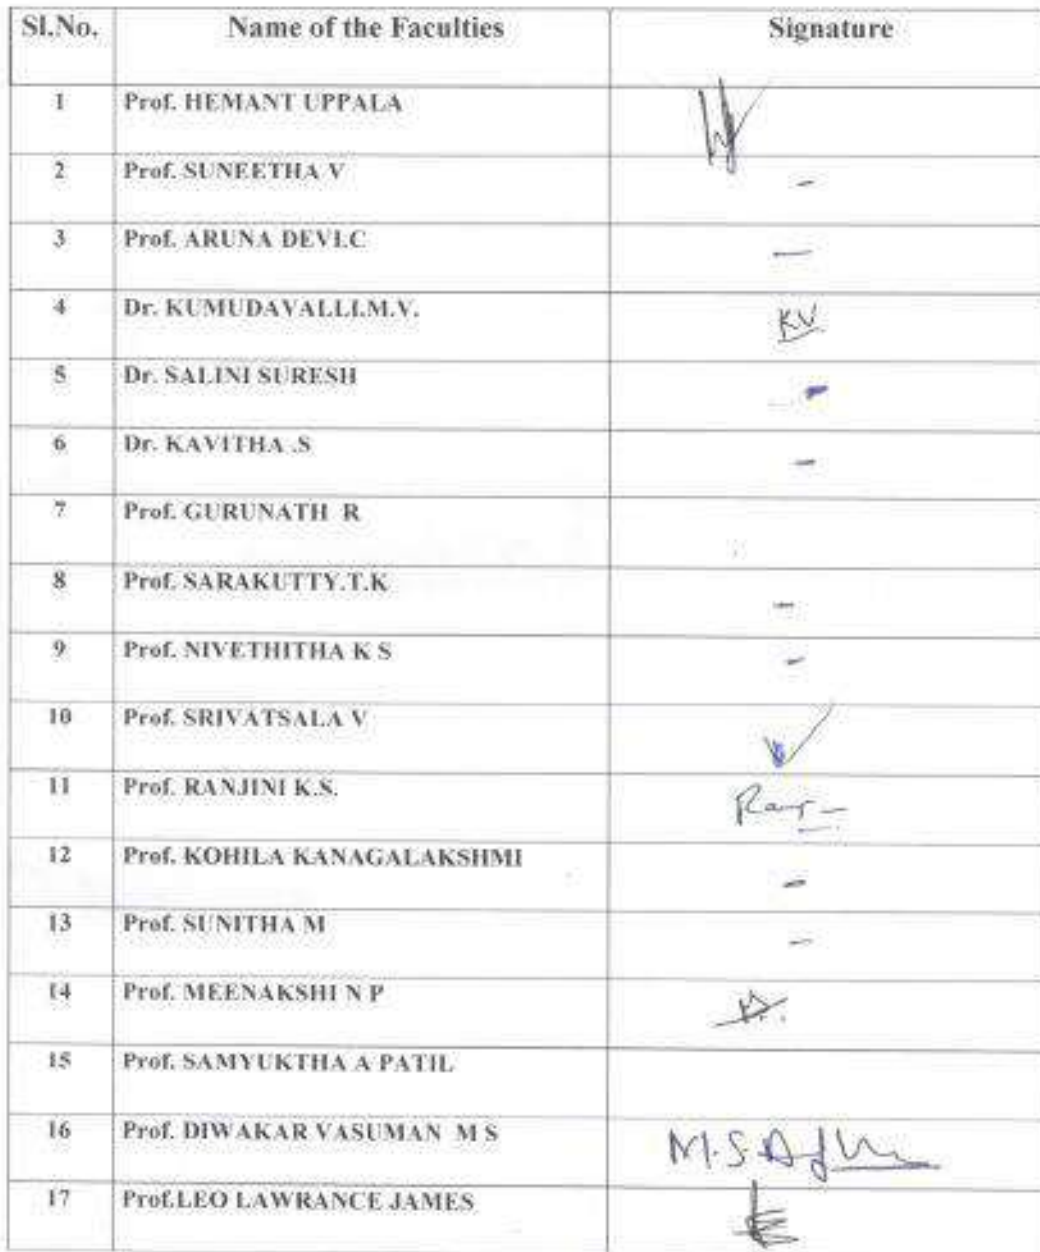 Sl.No. Name of the Faculties Signature
1 Prof. HEMANT UPPALA
2 Prof. SUNEETHA V -
3 Prof. ARUNA DEVI.C -
4 Dr. KUMUDAVALLI.M.V. KV
5 Dr. SALINI SURESH -
6 Dr. KAVITHA .S -
7 Prof. GURUNATH R
8 Prof. SARAKUTTY.T.K -
9 Prof. NIVETHITHA K S -
10 Prof. SRIVATSALA V
11 Prof. RANJINI K.S.
12 Prof. KOHILA KANAGALAKSHMI -
13 Prof. SUNITHA M -
14 Prof. MEENAKSHI N P
15 Prof. SAMYUKTHA A PATIL
16 Prof. DIWAKAR VASUMAN M S M.S.
17 Prof.LEO LAWRANCE JAMES